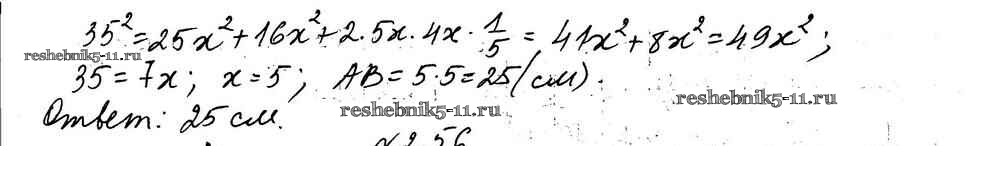 35² = 25x² + 16x² + 2·5x·4x·1/5 = 41x² + 8x² = 49x²;
reshebnik5-11.ru
35 = 7x; x = 5; AB = 5·5 = 25 (см).
reshebnik5-11.ru
reshebnik5-11.ru
Ответ: 25 см.